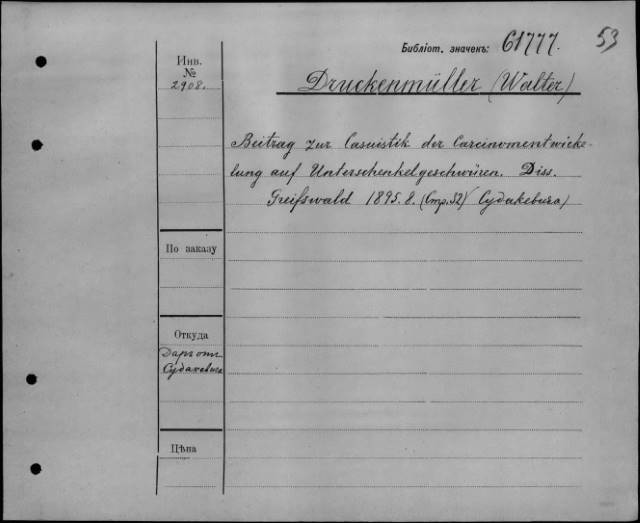 Библіот. значекъ: 61777.
53
Инв.
№
2908.
Druckenmüller (Walter)
Beitrag zur Casuistik der Carcinomentwicke-
lung auf Unterschenkelgeschwüren. Diss.
Greifswald 1895. 8. (Стр. 32) Судакевича)
По заказу
Откуда
Даръ отъ
Судакевича
Цѣна